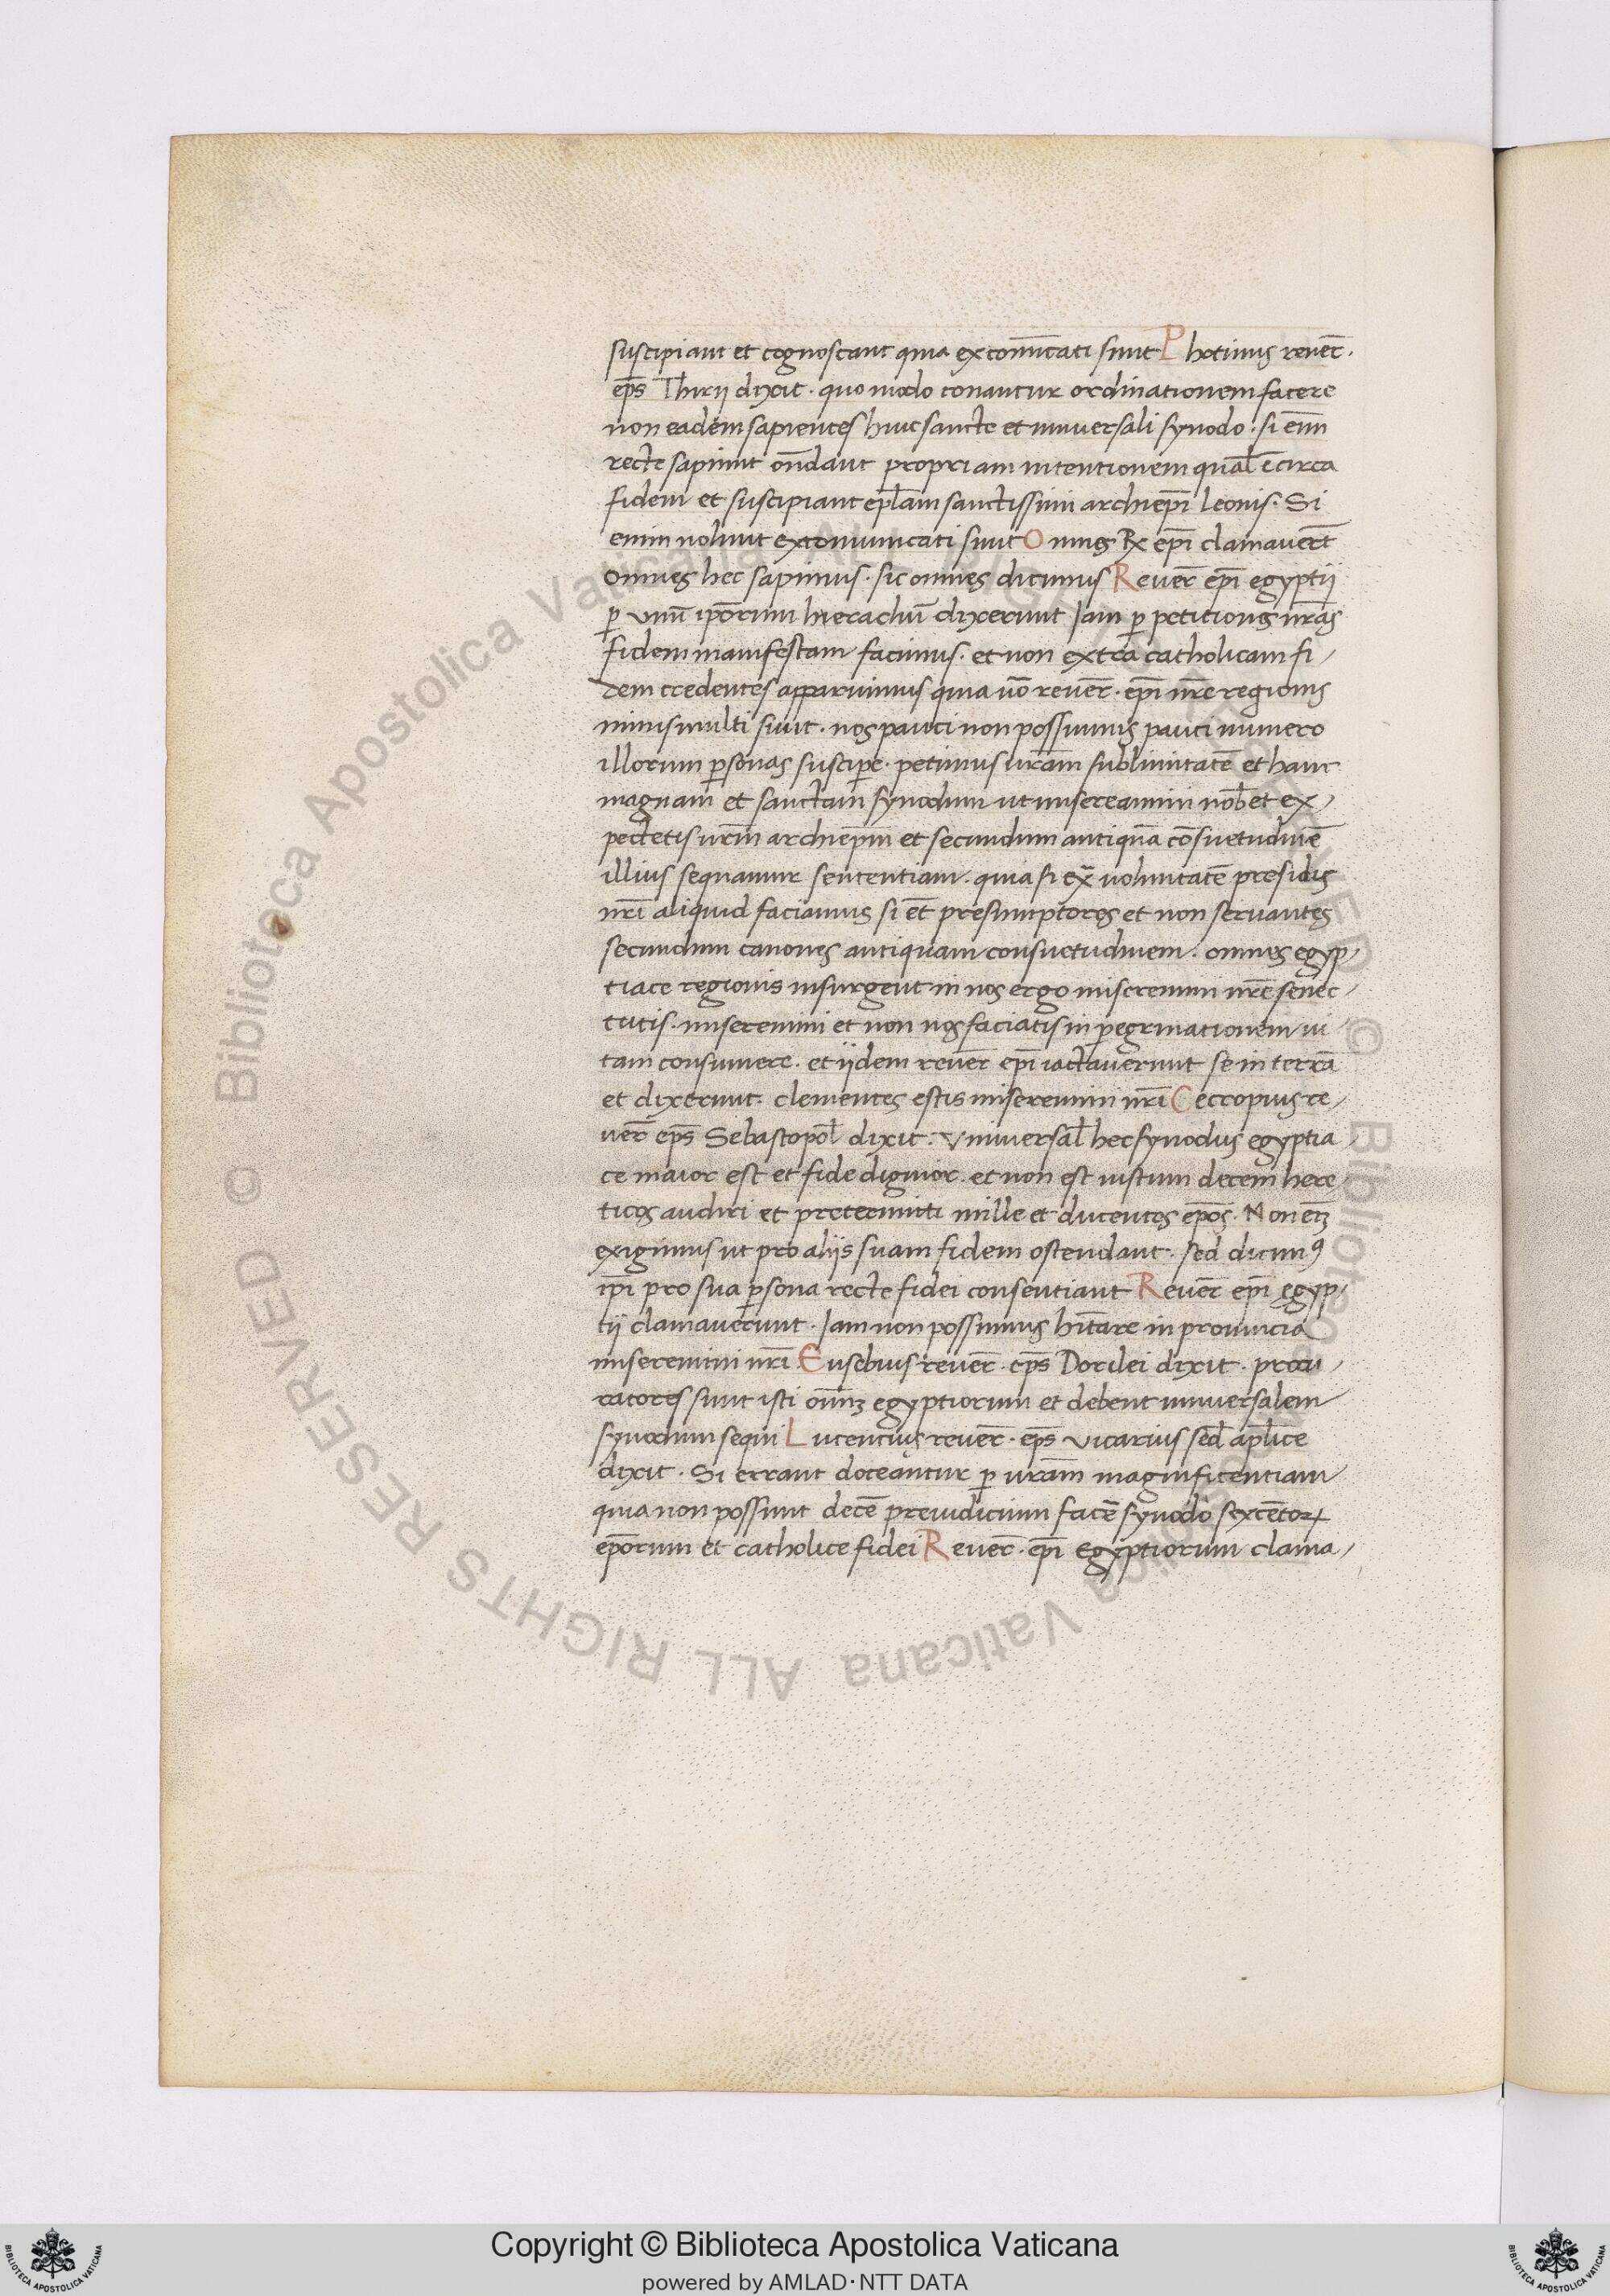 suscipiant et cognoscant quia excom̄unicati sunt Photinus reuer̄.
ep̄s Thirij dixit. quo modo conantur ordinationem facere
non eadem sapientes huic sancte et uniuersali synodo. si eni᷒m
recte sapiunt on̄dant propriam intentionem qual̄ ē circa
fidem et suscipiant ep̄lam sanctissimi archiep̄i leonis. Si
enim nolunt excomunicati sunt Omnes Rx ep̄i clamauer̄t
omnes hec sapimus. sic omnes dicimus Reuer̄ ep̄i egyptij
p̱ vnū ip̄orum hierachiū dixerunt Iam p̱ petitiones nr̄as
fidem manifestam facimus. et non extra catholicam fi,
dem credentes apparuimus quia uō reuer̄. ep̄i nr̄e regionis
nimis multi sunt. nos pauci non possumus pauci numero
illorum p̱sonas suscip̱e. petimus ur̄am sublimitatē et hanc
magnam et sanctam synodum ut misereamini nob̄ et ex,
pectetis ur̄m archiep̄m et secundum antiquā cōsuetudinē
illius sequamur sententiam. quia si ex̄ uoluntatē presidis
nr̄i aliquid faciamus si et̄ presumptores et non seruantes
secundum canones antiquam consuetudinem. omnes egyp,
tiace regionis insurgent in nos ergo miseremini nr̄e senec,
tutis. miseremini et non nos faciatis in p̱egrinationem ui,
tam consumere. et ijdem reuer̄ ep̄i iactauerunt se in terrā
et dixerunt. clementes estis miseremini nr̄i Cecropius re,
uer̄ ep̄s Sebastopol̄ dixit. Vniuersal̄ hec synodus egyptia,
ce maior est et fide dignior. et non est iustum decem here,
ticos audiri et pretermitti mille et ducentos ep̄os. Non etꝫ
exigimus ut pro alijs suam fidem ostendant. sed dicimꝰ
ip̄i pro sua p̱sona recte fidei consentiant Reuer̄ ep̄i egyp,
tij clamauerunt. Iam non possumus hītare in prouincia
miseremini nr̄i. Eusebius reuer̄. ep̄s Dorilei dixit. procu,
ratores sunt isti oīmꝫ egyptiorum et debent uniuersalem
synodum sequi Lucentius reuer̄. ep̄s vicarius sed̄ apl̄ice
dixit. Si errant doceantur p̱ ur̄am magnificentiam
quia non possunt decē preiudicium facē synodo sexcētoꝝ
ep̄orum et catholice fidei Reuer̄. ep̄i Egyptiorum clama,
Copyright © Biblioteca Apostolica Vaticana
powered by AMLAD·NTT DATA